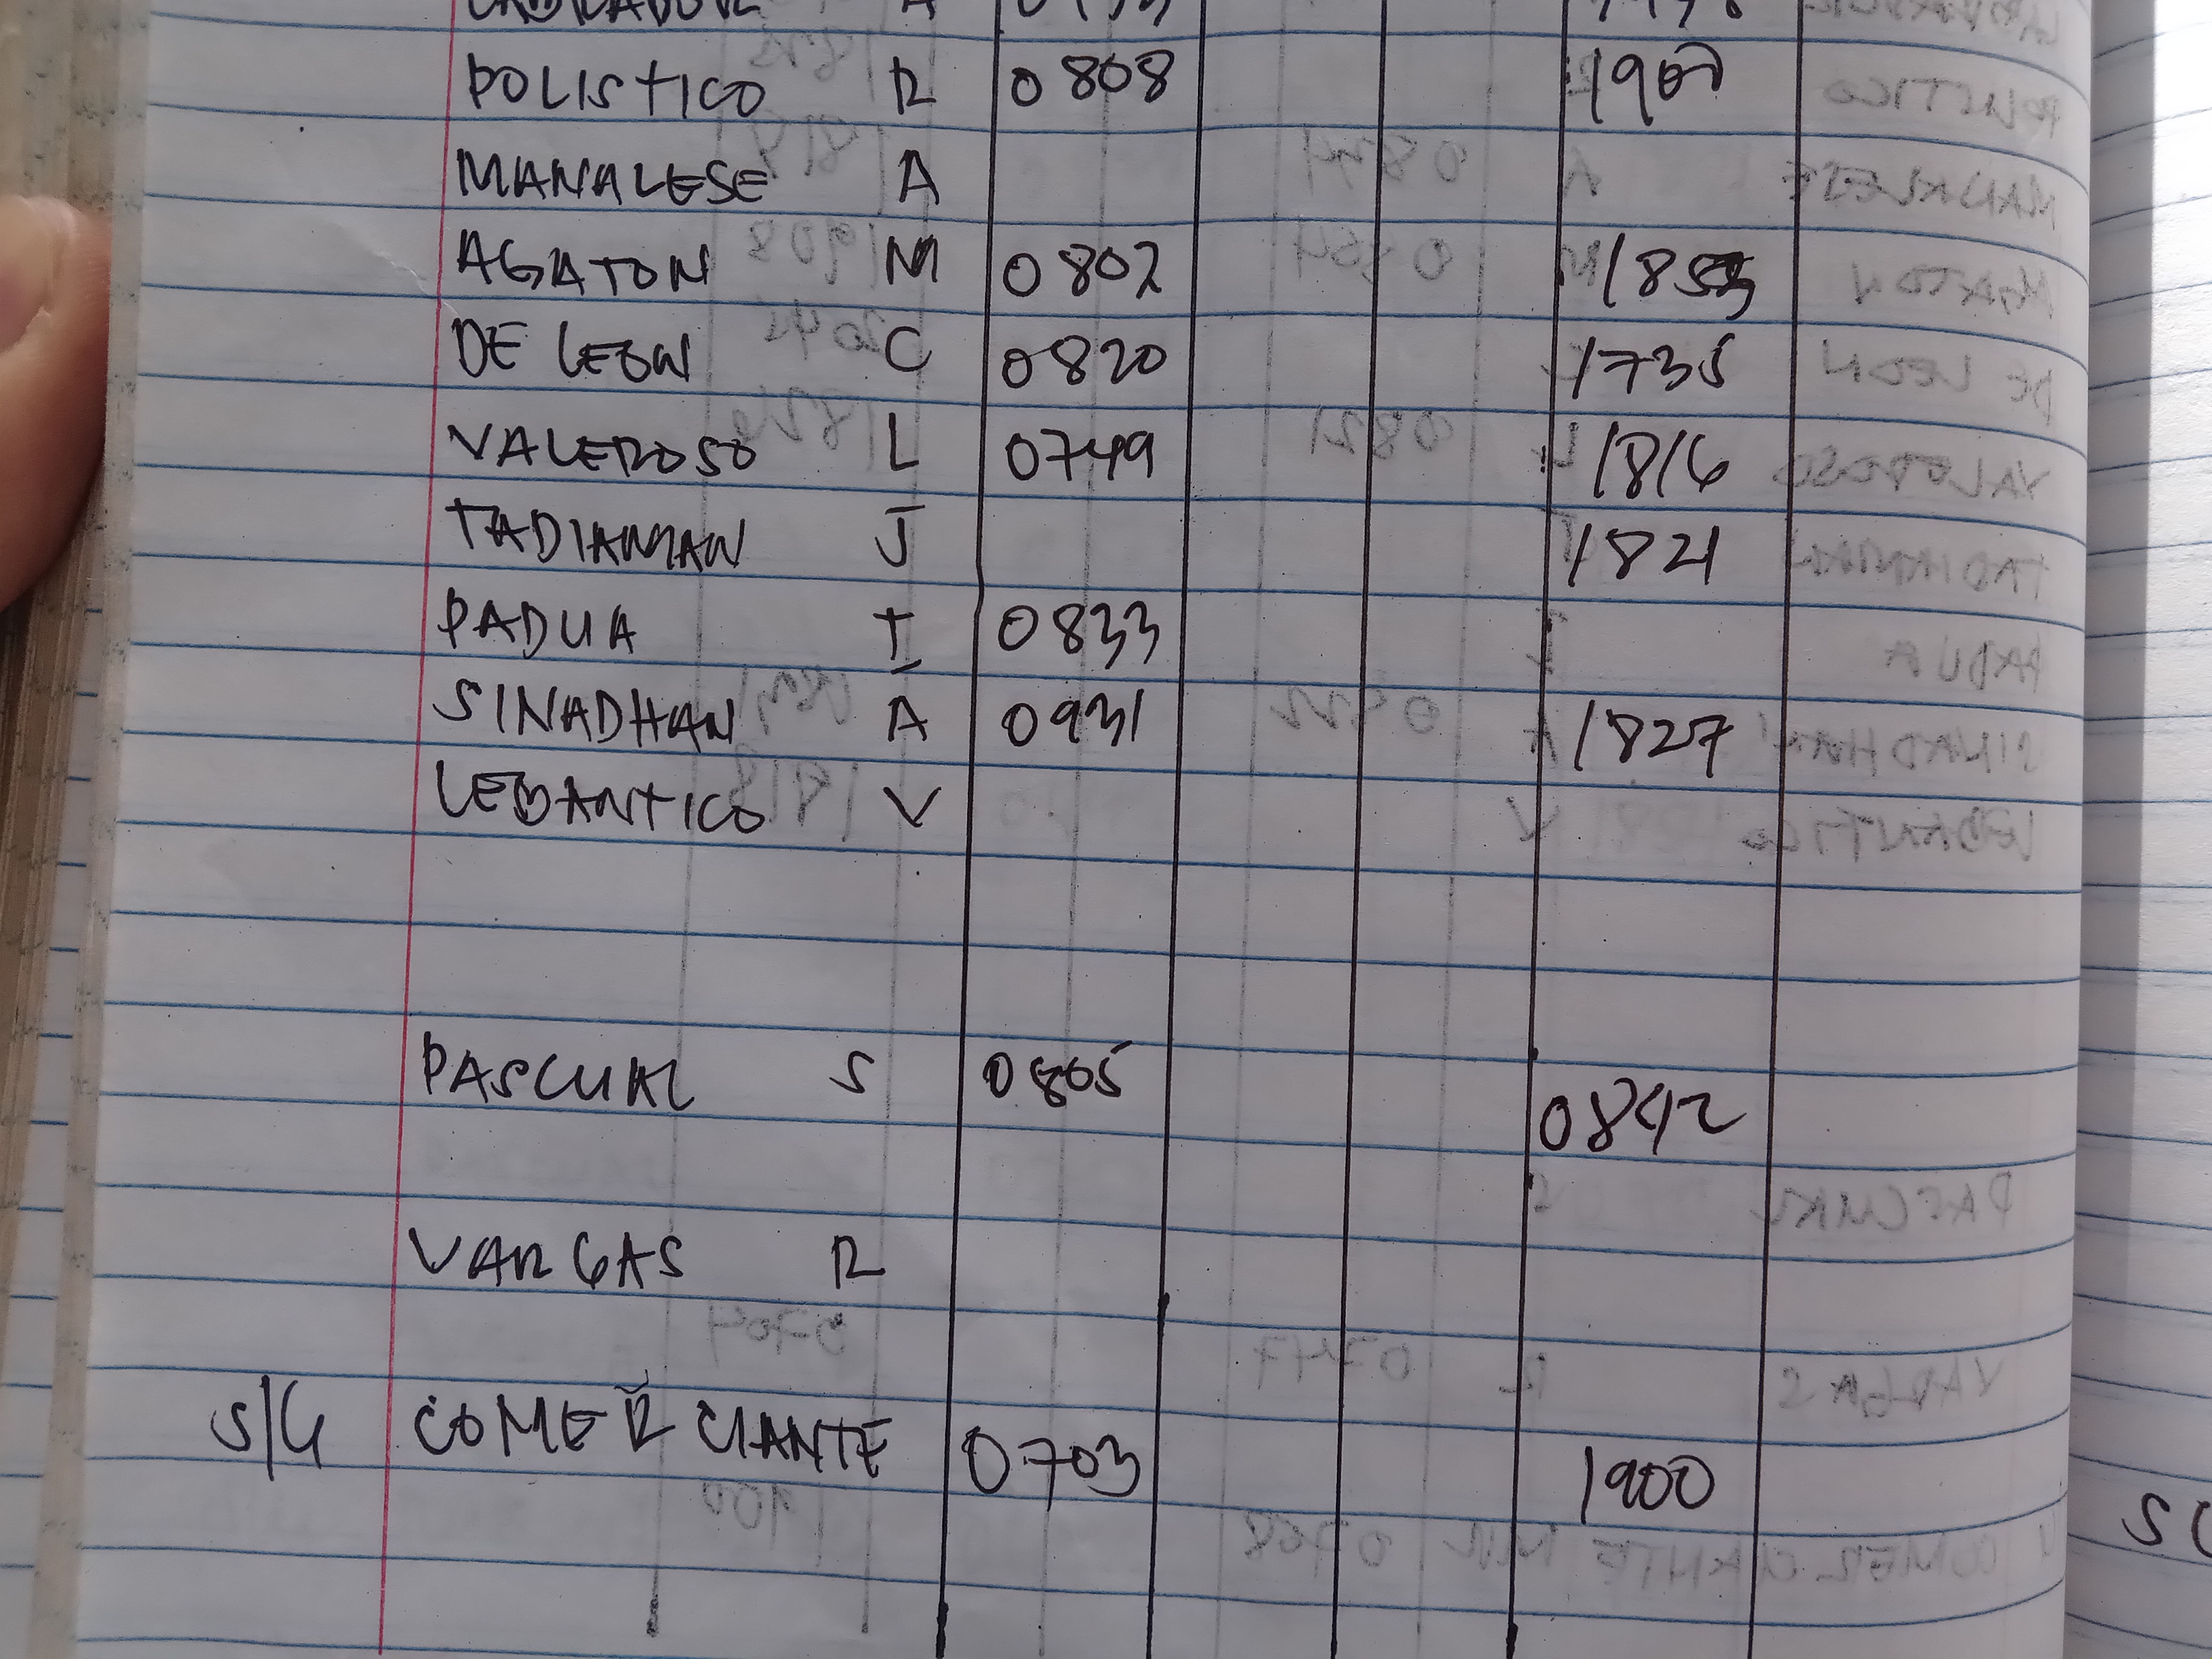 POLISTICO R 0808 1900
MANALESE A
AGATON M 0802 1853
DE LEON C 0820 1735
VALEROSO L 0749 1816
TADIAMAN J 1821
PADUA I 0833
SINADHAN A 0931 1827
LEDANTICO V
PASCUAL S 0805
0842
VARGAS R
S/G COMERCIANTE 0703 1900